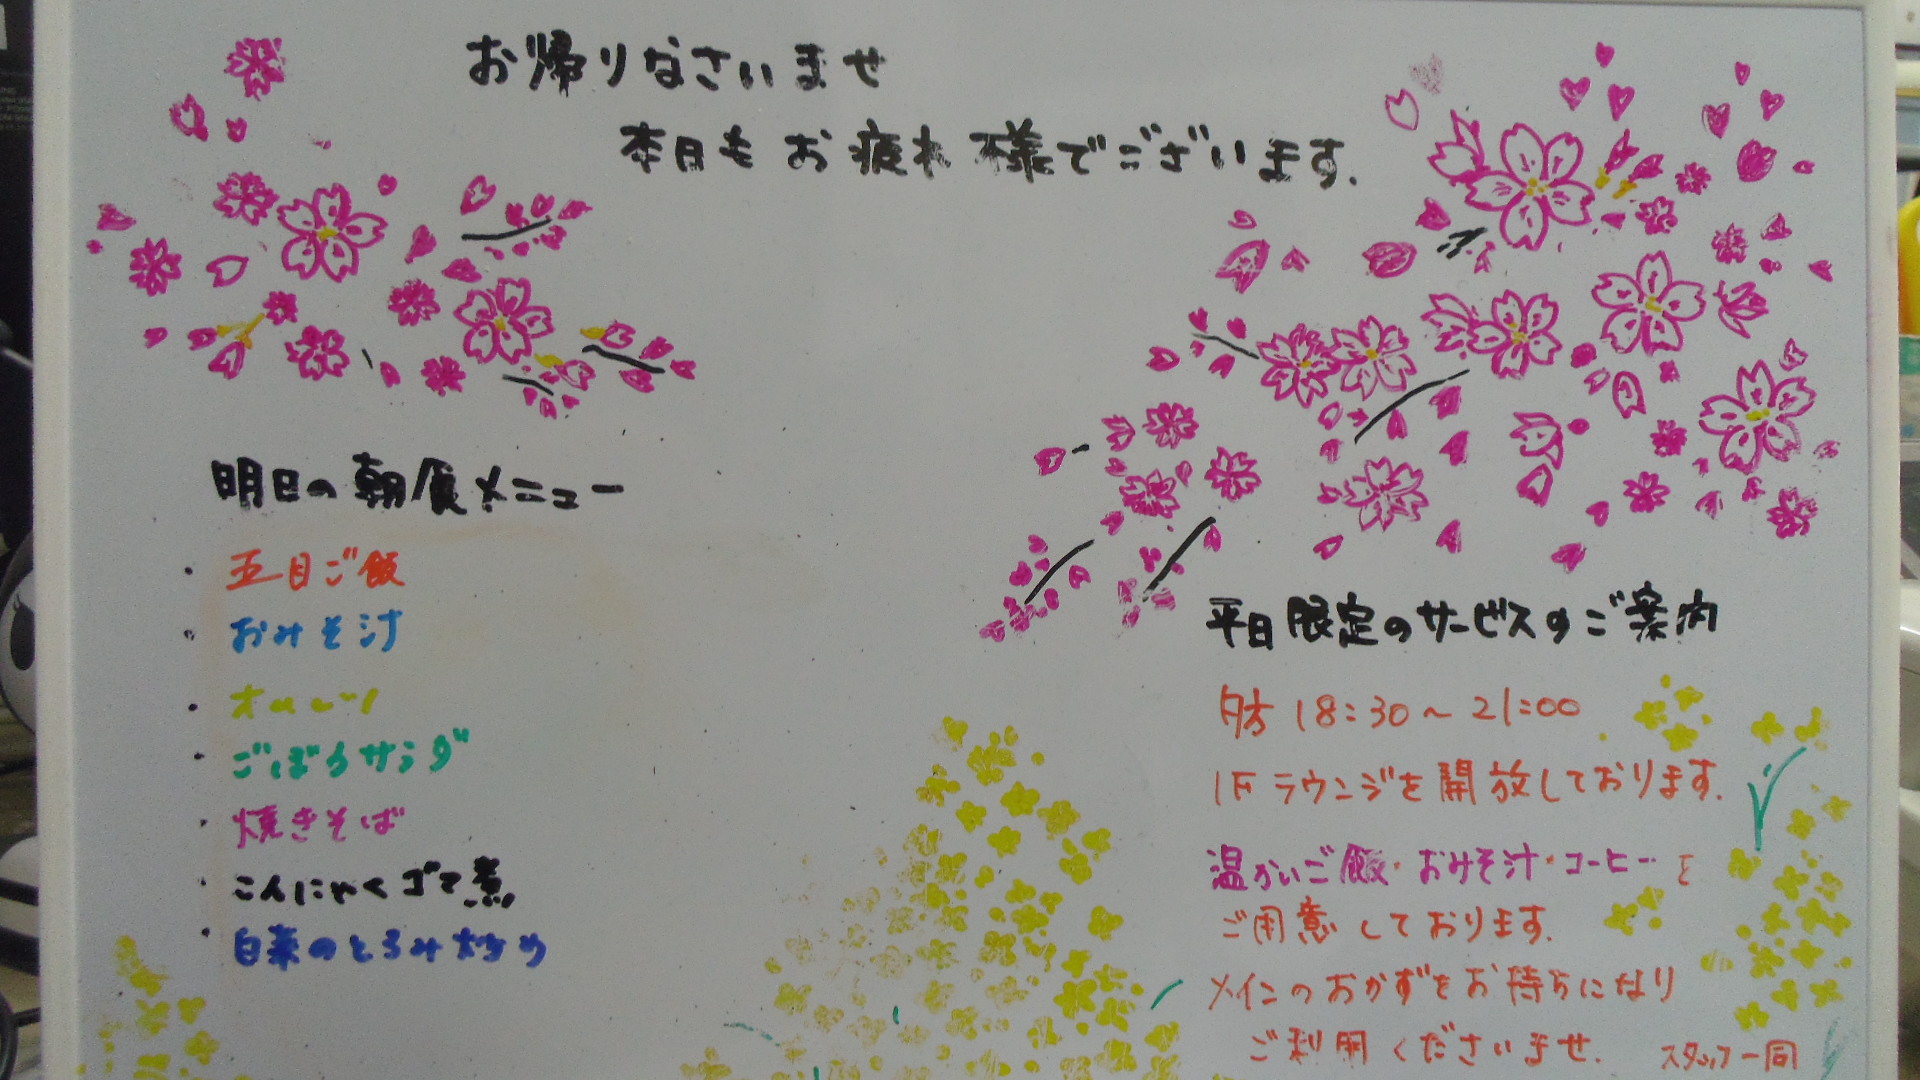 お帰りなさいませ
本日もお疲れ様でございます.
明日の朝食メニュー
・五目ご飯
・おみそ汁
・オムレツ
・ごぼうサラダ
・焼きそば
・こんにゃくゴマ煮
・白菜のとろみ炒め
平日限定のサービスのご案内
夕方 18:30～21:00
1Fラウンジを開放しております.
温かいご飯・おみそ汁・コーヒーを
ご用意しております.
メインのおかずをお持ちになり
ご利用くださいませ.
スタッフ一同